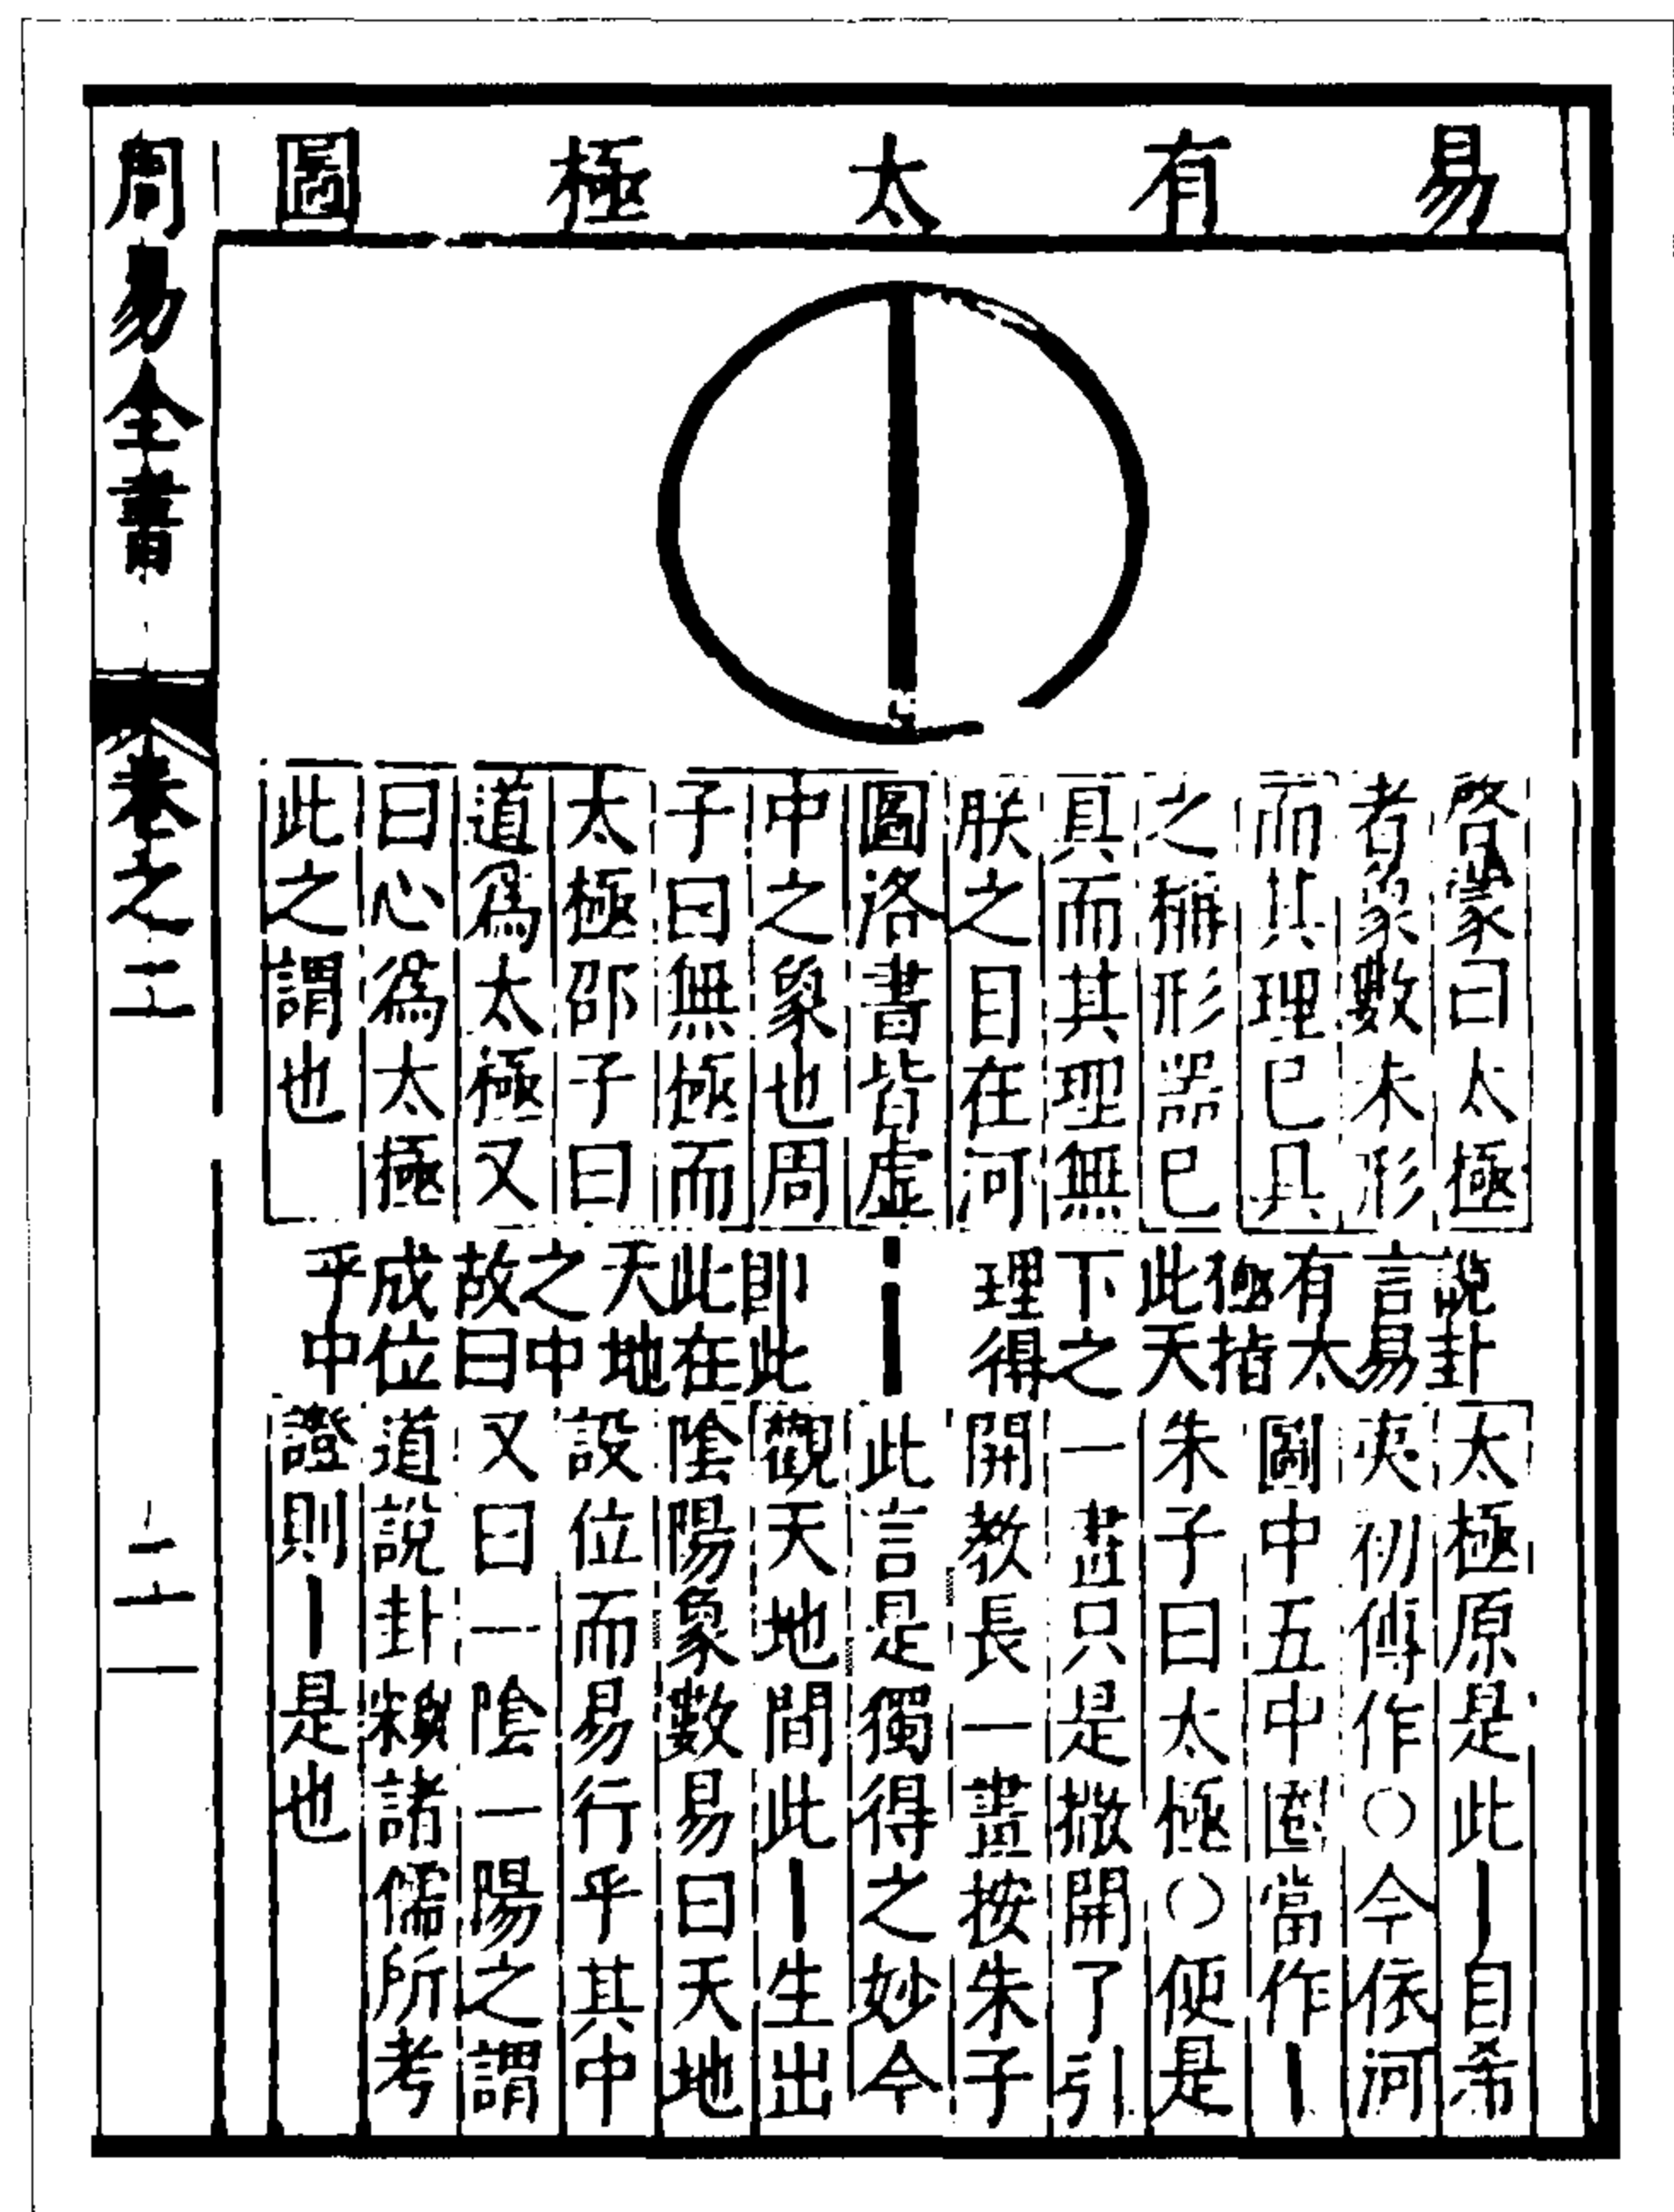 易有太極圖
啓蒙曰太極
者象數未形
而其理已具
之稱形器已
具而其理無
朕之目在河
圖洛書皆虛
中之象也周
子曰無極而
太極邵子曰
道爲太極又
曰心爲太極
此之謂也
說卦
言易
有太
極指
此天
下之
理得
即此
此在
天地
之中
故曰
成位
乎中
太極原是此丨自希
夷初傳作○今依河
圖中五中圈當作丨
朱子曰太極○便是
一畫只是撒開了引
開教長一畫按朱子
此言是獨得之妙今
觀天地間此丨生出
陰陽象數易曰天地
設位而易行乎其中
又曰一陰一陽之謂
道說卦賴諸儒所考
證則丨是也
周易全書
卷之二
二